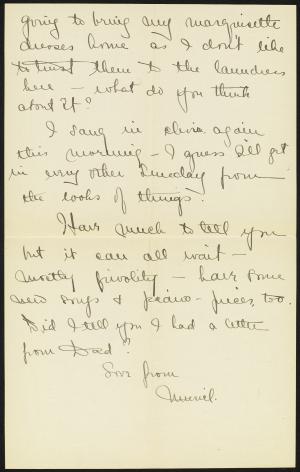 going to bring my marquisette
dresses home as I don't like
to trust them to the laundress
here – what do you think
about it?
I sang in choir again
this morning – I guess I'll get
in every other Sunday from
the looks of things.
Have much to tell you
but it can all wait –
mostly frivolity – have some
new songs & piano-pieces, too.
Did I tell you I had a letter
from Dad?
Love from
Muriel.